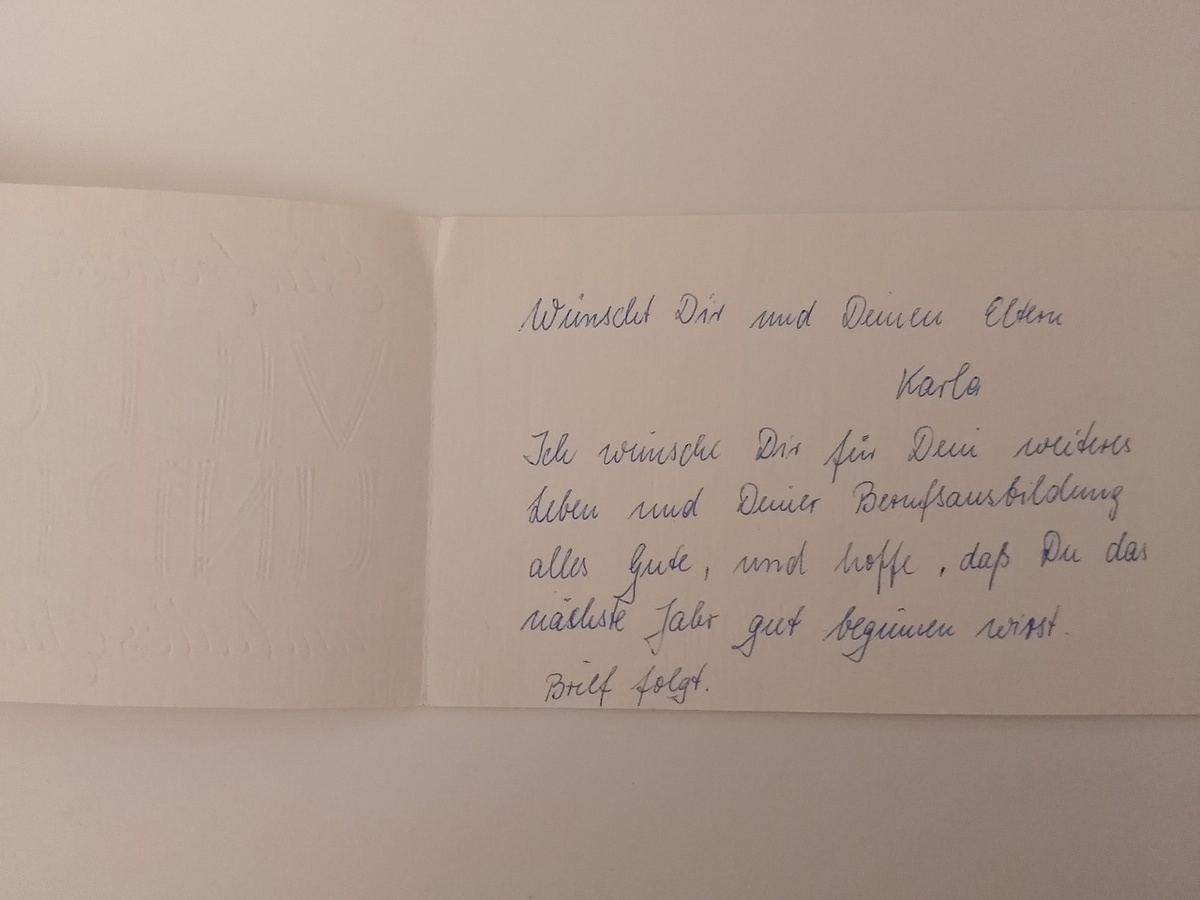 Wünscht Dir und Deinen Eltern
Karla
Ich wünsche Dir für Dein weiteres
Leben und Deiner Berufsausbildung
alles Gute, und hoffe, daß Du das
nächste Jahr gut beginnen wirst.
Brief folgt.